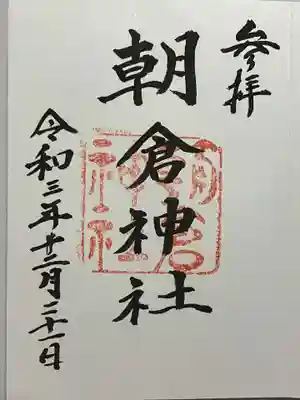 参拝
朝倉神社
令和三年十二月二十一日